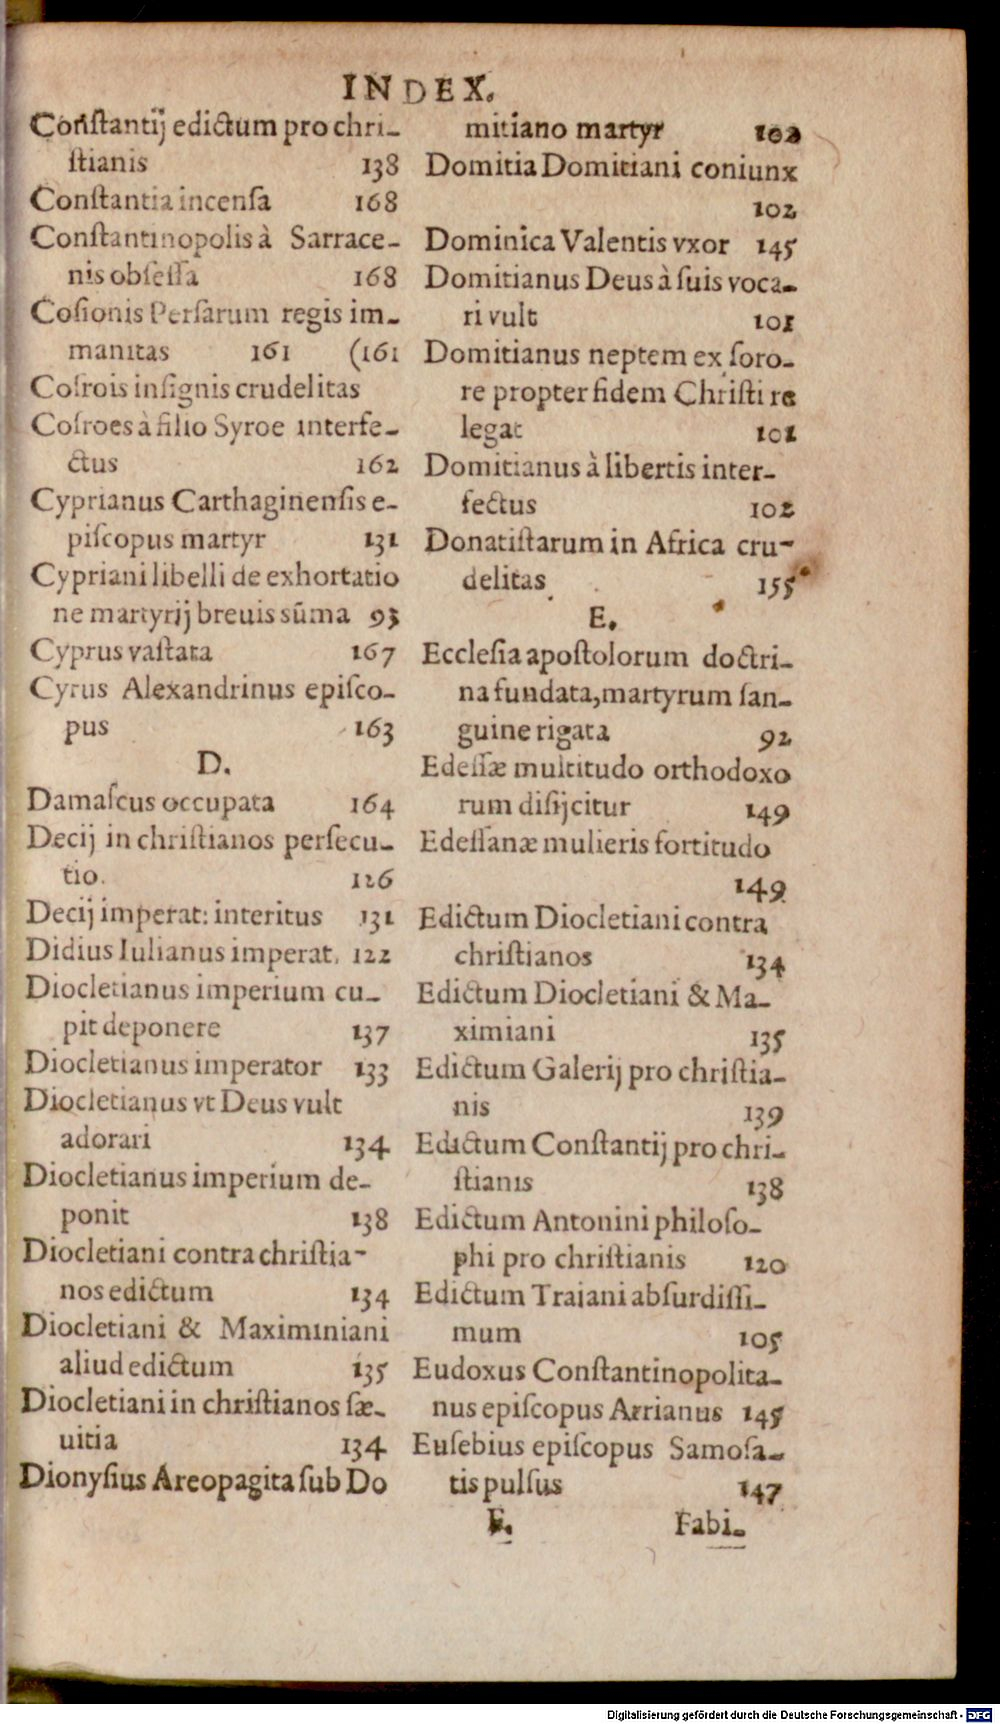 INDEX.
Conſtantij edictum pro chri-
ſtianis 138
Conſtantia incenſa 168
Conſtantinopolis à Sarrace-
nis obſeſſa 168
Coſionis Perſarum regis im-
manitas 161 (161
Coſrois inſignis crudelitas
Coſroes à filio Syroe interfe-
ctus 162
Cyprianus Carthaginenſis e-
piſcopus martyr 131
Cypriani libelli de exhortatio
ne martyrij breuis sūma 93
Cyprus vaſtata 167
Cyrus Alexandrinus epiſco-
pus 163
D.
Damaſcus occupata 164
Decij in chriſtianos perſecu-
tio. 126
Decij imperat: interitus 131
Didius Iulianus imperat. 122
Diocletianus imperium cu-
pit deponere 137
Diocletianus imperator 133
Diocletianus vt Deus vult
adorari 134
Diocletianus imperium de-
ponit 138
Diocletiani contra chriſtia-
nos edictum 134
Diocletiani & Maximiniani
aliud edictum 135
Diocletiani in chriſtianos ſæ-
uitia 134
Dionyſius Areopagita ſub Do
mitiano martyr 102
Domitia Domitiani coniunx
102
Dominica Valentis vxor 145
Domitianus Deus à ſuis voca-
ri vult 101
Domitianus neptem ex ſoro-
re propter fidem Chriſti re
legat 101
Domitianus à libertis inter-
fectus 102
Donatiſtarum in Africa cru-
delitas 155
E.
Eccleſia apoſtolorum doctri-
na fundata, martyrum ſan-
guine rigata 92
Edeſſæ multitudo orthodoxo
rum diſijcitur 149
Edeſſanæ mulieris fortitudo
149
Edictum Diocletiani contra
chriſtianos 134
Edictum Diocletiani & Ma-
ximiani 135
Edictum Galerij pro chriſtia-
nis 139
Edictum Conſtantij pro chri-
ſtianis 138
Edictum Antonini philoſo-
phi pro chriſtianis 120
Edictum Traiani abſurdiſſi-
mum 105
Eudoxus Conſtantinopolita-
nus epiſcopus Arrianus 145
Euſebius epiſcopus Samoſa-
tis pulſus 147
F. Fabi-
Digitalisierung gefördert durch die Deutsche Forschungsgemeinschaft - DFG